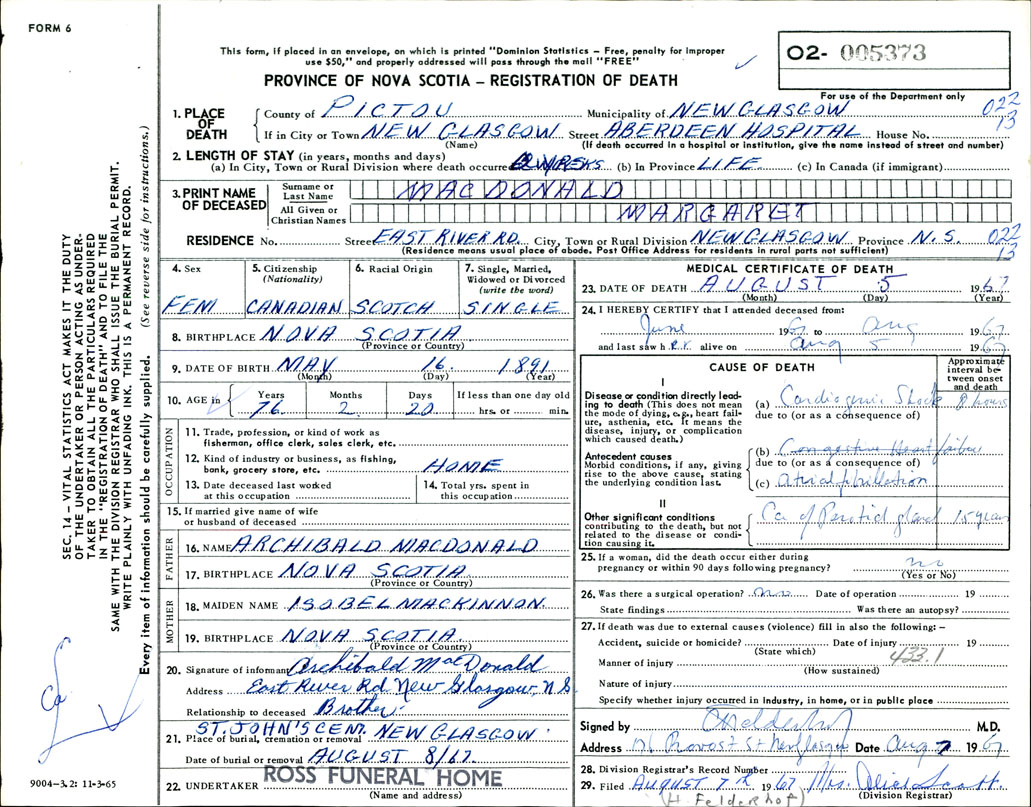 FORM 6
This form, if placed in an envelope, on which is printed "Dominion Statistics – Free, penalty for improper
use $50," and properly addressed will pass through the mail "FREE"
02- 005373
PROVINCE OF NOVA SCOTIA – REGISTRATION OF DEATH
For use of the Department only
1. PLACE OF DEATH
County of PICTOU Municipality of NEW GLASGOW 022
If in City or Town NEW GLASGOW Street ABERDEEN HOSPITAL House No. 13
(Name) (If death occurred in a hospital or institution, give the name instead of street and number)
2. LENGTH OF STAY (in years, months and days)
(a) In City, Town or Rural Division where death occurred WEEKS (b) In Province LIFE (c) In Canada (if immigrant)
3. PRINT NAME OF DECEASED
Surname or Last Name MACDONALD
All Given or Christian Names MARGARET
RESIDENCE No. Street EAST RIVER RD. City, Town or Rural Division NEW GLASGOW Province N.S. 022
(Residence means usual place of abode. Post Office Address for residents in rural parts not sufficient) 13
4. Sex
FEM
5. Citizenship (Nationality)
CANADIAN
6. Racial Origin
SCOTCH
7. Single, Married, Widowed or Divorced (write the word)
SINGLE
8. BIRTHPLACE NOVA SCOTIA
(Province or Country)
9. DATE OF BIRTH MAY 16 1891
(Month) (Day) (Year)
10. AGE in Years Months Days If less than one day old
76 2 20 hrs. or min.
OCCUPATION
11. Trade, profession, or kind of work as
fisherman, office clerk, sales clerk, etc.
12. Kind of industry or business, as fishing,
bank, grocery store, etc. HOME
13. Date deceased last worked
at this occupation
14. Total yrs. spent in
this occupation
15. If married give name of wife
or husband of deceased
FATHER
16. NAME ARCHIBALD MACDONALD
17. BIRTHPLACE NOVA SCOTIA
(Province or Country)
MOTHER
18. MAIDEN NAME ISOBEL MACKINNON
19. BIRTHPLACE NOVA SCOTIA
(Province or Country)
20. Signature of informant Archibald MacDonald
Address East River Rd New Glasgow N.S
Relationship to deceased Brother
21. Place of burial, cremation or removal ST. JOHN'S CEM. NEW GLASGOW
Date of burial or removal AUGUST 8/67
22. UNDERTAKER ROSS FUNERAL HOME
(Name and address)
MEDICAL CERTIFICATE OF DEATH
23. DATE OF DEATH AUGUST 5 1967
(Month) (Day) (Year)
24. I HEREBY CERTIFY that I attended deceased from:
June 196 to Aug 1967
and last saw her alive on Aug 5 1967
CAUSE OF DEATH
Approximate interval between onset and death
I
Disease or condition directly leading to death (This does not mean the mode of dying, e.g., heart failure, asthenia, etc. It means the disease, injury, or complication which caused death.)
(a) Cardiogenic Shock 8 hours
due to (or as a consequence of)
Antecedent causes
Morbid conditions, if any, giving rise to the above cause, stating the underlying condition last.
(b) Congestive Heart failure
due to (or as a consequence of)
(c) Atrial fibrillation
II
Other significant conditions
contributing to the death, but not related to the disease or condition causing it.
Ca of Parotid gland 15 years
25. If a woman, did the death occur either during
pregnancy or within 90 days following pregnancy? no
(Yes or No)
26. Was there a surgical operation? no Date of operation 19
State findings Was there an autopsy?
27. If death was due to external causes (violence) fill in also the following: –
Accident, suicide or homicide? Date of injury 19
(State which)
Manner of injury 433.1
(How sustained)
Nature of injury
Specify whether injury occurred in industry, in home, or in public place
Signed by M.D.
Address 176 Provost St New Glasgow Date Aug 7 1967
28. Division Registrar's Record Number
29. Filed AUGUST 7th 1967 Mrs. Scott
(H. Felderhof) (Division Registrar)
SEC. 14 – VITAL STATISTICS ACT MAKES IT THE DUTY
OF THE UNDERTAKER OR PERSON ACTING AS UNDER-
TAKER TO OBTAIN ALL THE PARTICULARS REQUIRED
IN THE "REGISTRATION OF DEATH" AND TO FILE THE
SAME WITH THE DIVISION REGISTRAR WHO SHALL ISSUE THE BURIAL PERMIT.
WRITE PLAINLY WITH UNFADING INK. THIS IS A PERMANENT RECORD.
Every item of information should be carefully supplied. (See reverse side for instructions.)
Ca
9004–3.2: 11-3-65